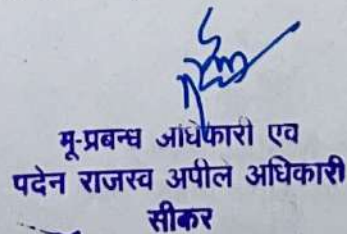 मू-प्रबन्ध आधिकारी एव
पदेन राजस्व अपील अधिकारी
सीकर